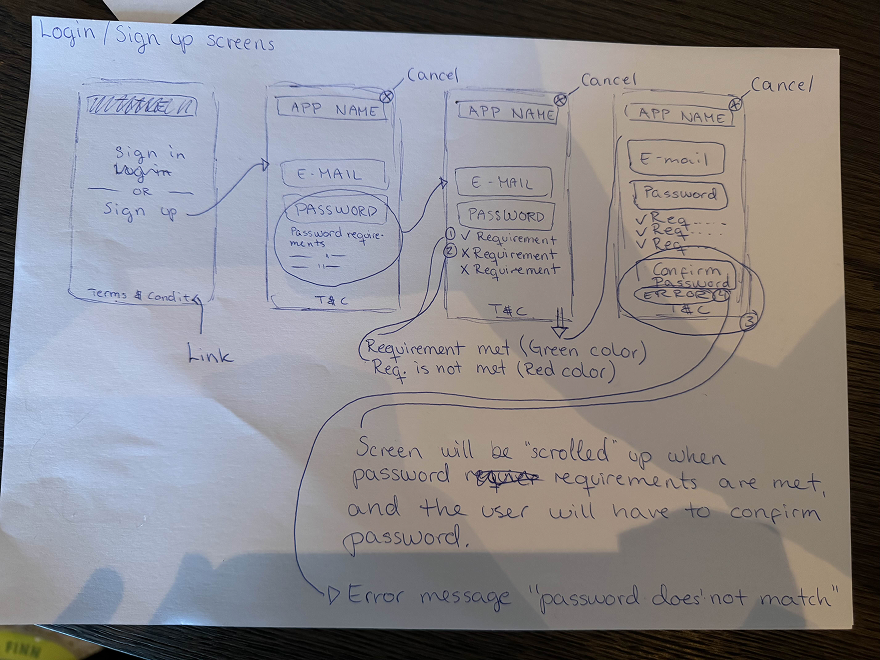 Login/Sign up screens
Sign in
Login
OR
Sign up
Terms & Condit
Link
Cancel
APP NAME
E-MAIL
PASSWORD
Password require-
ments
T&C
Cancel
APP NAME
E-MAIL
PASSWORD
1 ✓ Requirement
2 X Requirement
X Requirement
T&C
Cancel
APP NAME
E-mail
Password
✓ Req....
✓ Req.....
✓ Req
Confirm
Password
ERROR 4
T&C
3
Requirement met (Green color)
Req. is not met (Red color)
Screen will be "scrolled" up when
password requirements are met,
and the user will have to confirm
password.
Error message "password does not match"
FINN